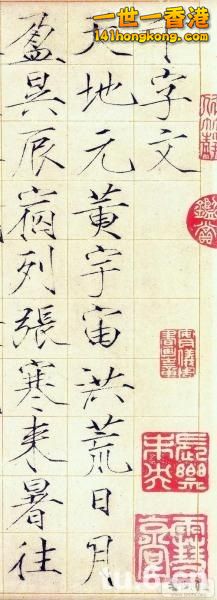 一世一香港
141hongkong.com
字文
天地元黃宇宙洪荒日月
盈昃辰宿列張寒来暑往
鑑賞